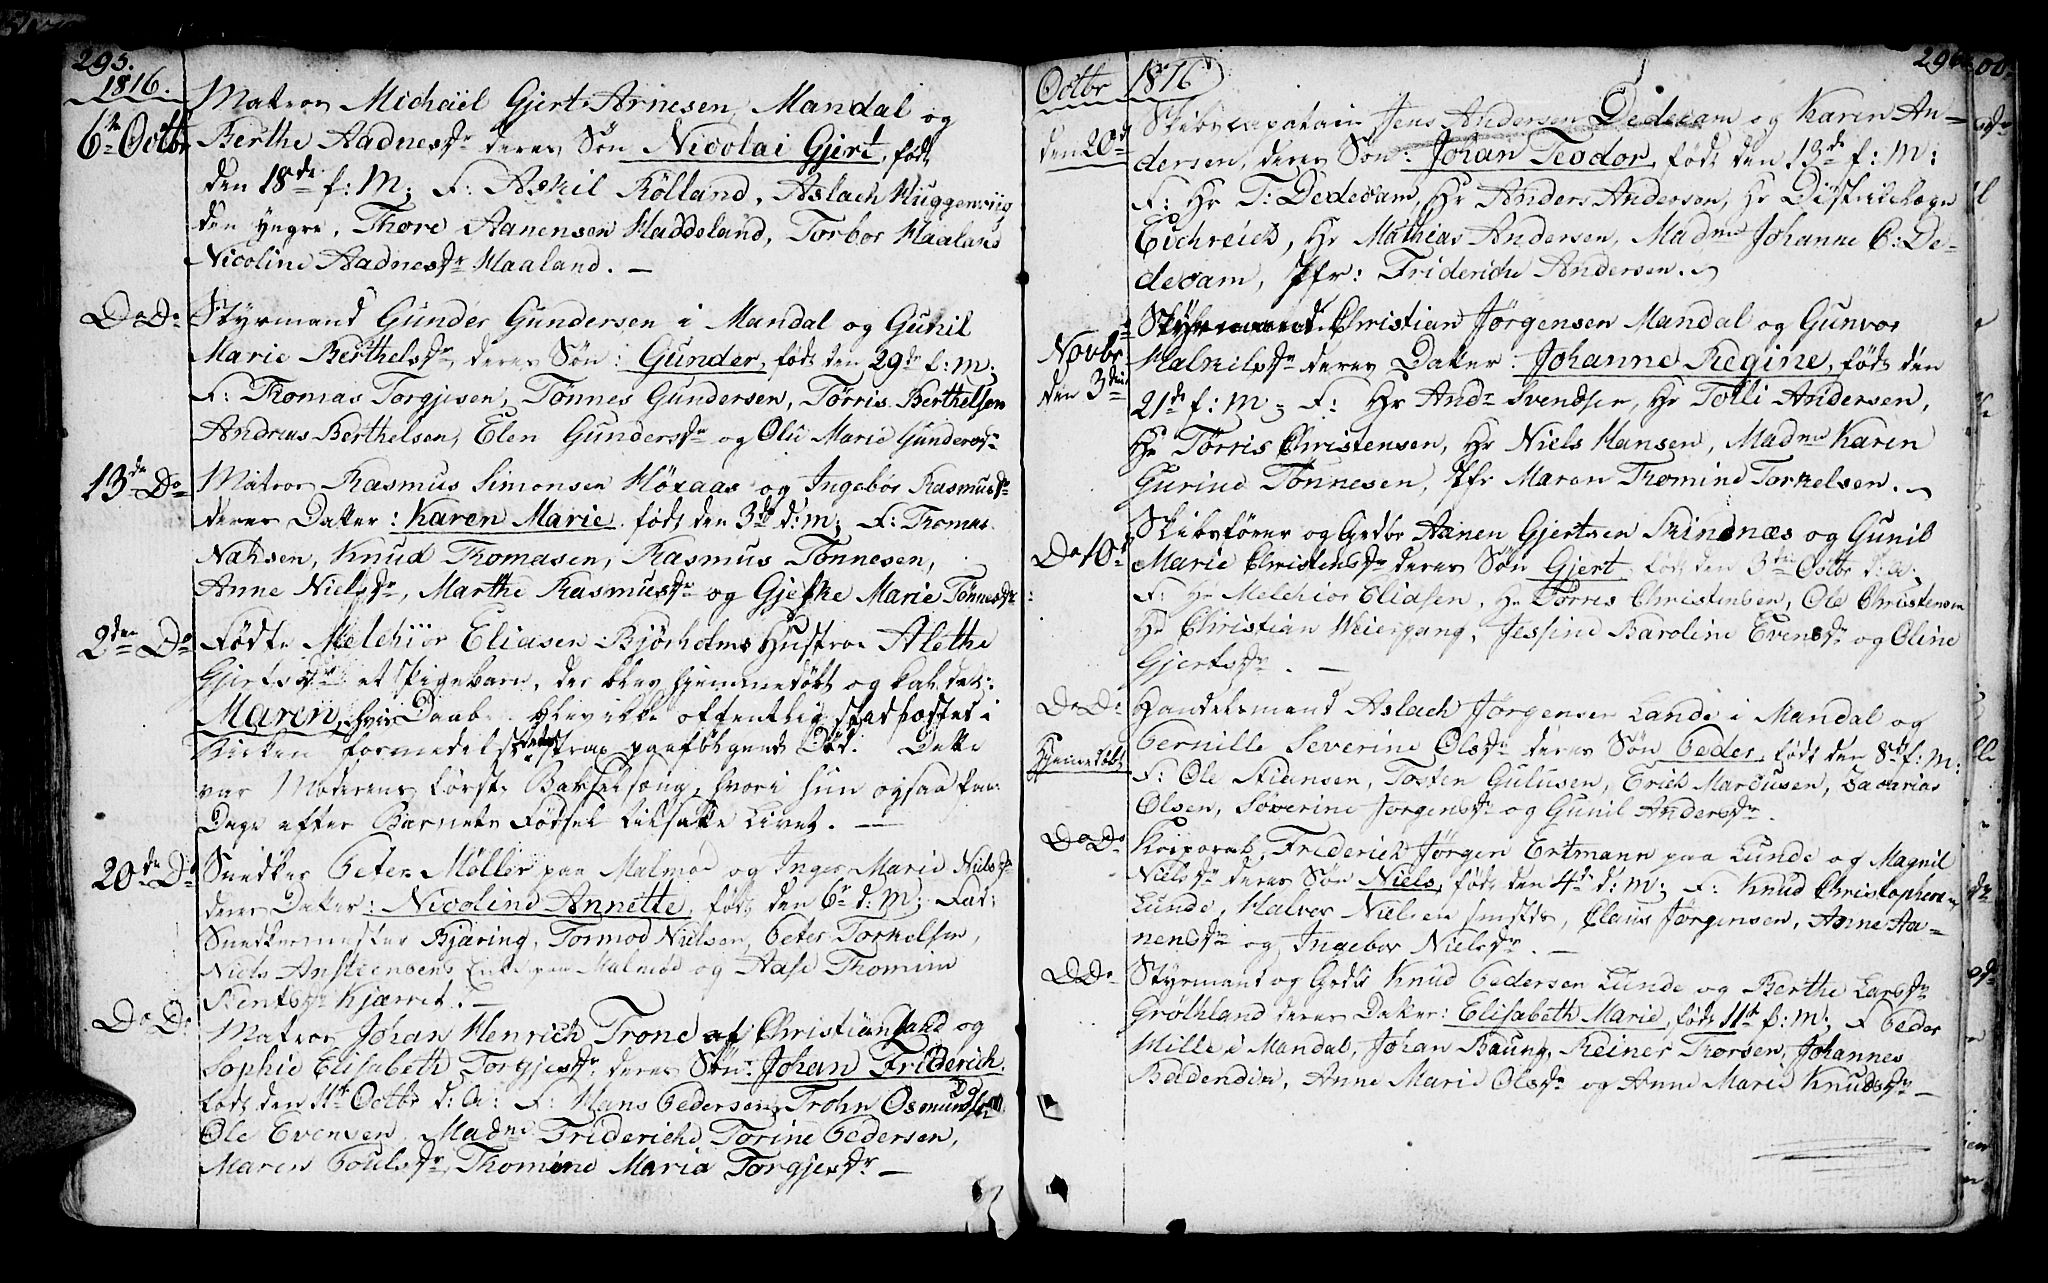 295.
1816.
6te Octbr
Matros Michaël Gjert Arnesen, Mandal og
Berthe Aadnesdr deres Søn Nicolai Gjert, født
den 18de f: M; F: Askil Rölland, Aslach
den yngre, Thore Aanensen Haddeland, Torbor Haaland
Nicoline Aadnesdr Haaland. —
Do Do
Styrmand Gunder Gundersen i Mandal og Gunil
Marie Berthelsdr deres Søn: Gunder, født den 29de f: M;
F: Thomas Torgjesen, Tønnes Gundersen, Tørris Berthelsen
Andreas Berthelsen, Elen Gundersdr og Olie Marie Gundersdr
13de Do
Matros Rasmus Simonsen og Ingebor Rasmusdr
deres Datter: Karen Marie, født den 3de d: m; F: Thomas
Knud Thomasen, Rasmus Tønnesen,
Anne Nielsdr, Marthe Rasmusdr og Gjeske Marie Tønnesdr
2den Do
Fødte Melchiior Eliasen Bjørholms Hustroe Alethe
Gjertsdr et Pigebarn, der blev hjemmedøbt og kaldet:
Maren, hvis Daab ei offentlig stadfæstet i
Kirken formedelst dets strax paafølgende Død. Dette
var Moderens første Barselseng, hvori hun ogsaa faa
Dage efter Barnets Fødsel tilsatte Livet. —
20de Do
Snedker Peter Møller paa Malmøe og Inger Marie Nielsdr
deres Datter: Nicoline Annette, født den 6te d: M; Fad:
Snedkermester Bjæring, Tormod Nielsen, Peter Torkelsen,
Niels Anstensens Enke paa Malmøe og Aase Thomine
Bentsdr Kjærret. —
Do Do
Matros Johan Henrich Trone af Christiansand og
Sophie Elisabeth Torgjesdr deres Søn: Johan Friderich
født den 11te Octbr d: A: F: Hans Pedersen, Trohn Osmundsen
Ole Evensen, Madme Frideriche Torine Pedersen,
Maren Poulsdr, Thomine Maria Torgjesdr —
296
Octbr 1816
den 20de
Skibscapatain Jens Andersen Dedecam og Karen An-
dersen, deres Søn: Johan Teodor, født den 13de f: M:
F: Hr T: Dedecam, Hr Anders Andersen, Hr Distriktslæge
Eichreich, Hr Mathias Andersen, Madme Johanne C: De-
decam, Jfr: Frideriche Andersen.
Novbr
den 3die
Styrmand Christian Jørgensen Mandal og Gunvor
Halkilsdr deres Datter: Johanne Regine, født den
21de f: M; F: Hr Andr Svendsen, Hr Tolli Andersen,
Hr Tørris Christensen, Hr Niels Hansen, Madme Karen
Gurine Tønnesen, Jfr Maren Thomine Torkelsen.
Do 10de
Skibsfører og Grdbr Aanen Gjertsen Skindnæs og Gunil
Marie Christensdr deres Søn Gjert, født den 3die Octbr d: a;
F: Hr Melchior Eliasen, Hr Tørris Christensen, Ole Christensen
Hr Christian Weiergang, Jessine Baroline Evensdr og Oline
Gjertsdr. —
Do Do
Hjemmedøbt
Handelsmand Aslach Jørgensen Lande i Mandal og
Pernille Severine Olsdr deres Søn Peder, født den 8de f: M:
F: Ole Stiansen, Tosten Gulusen, Erich Marcusen, Zacarias
Olsen, Søverine Jørgensdr og Gunil Andersdr.
Do Do
Korporal Friderich Jørgen Ertmann paa Lunde og Magnil
Nielsdr deres Søn Niels, født den 4de d: m; F: Knud Christophersen
Lunde, Halvor Nielsen, Claus Jørgensen, Anne Aa-
nensdr og Ingebor Nielsdr. —
Do Do
Styrmand og Knud Pedersen Lunde og Berthe Larsdr
Grølhland deres Datter: Elisabeth Marie, født 11te f: m; F Peder
Wille i Mandal, Johan Baung, Reiner Thorsen, Johannes
Badendix, Anne Marie Olsdr og Anne Marie Knudsdr —